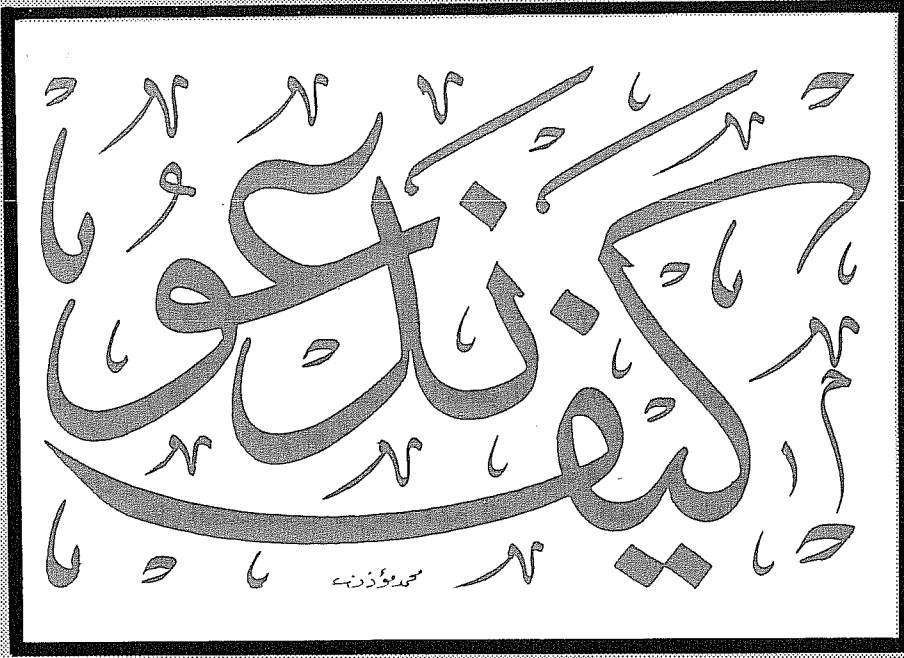 كيف ندعو
محمد مؤذن